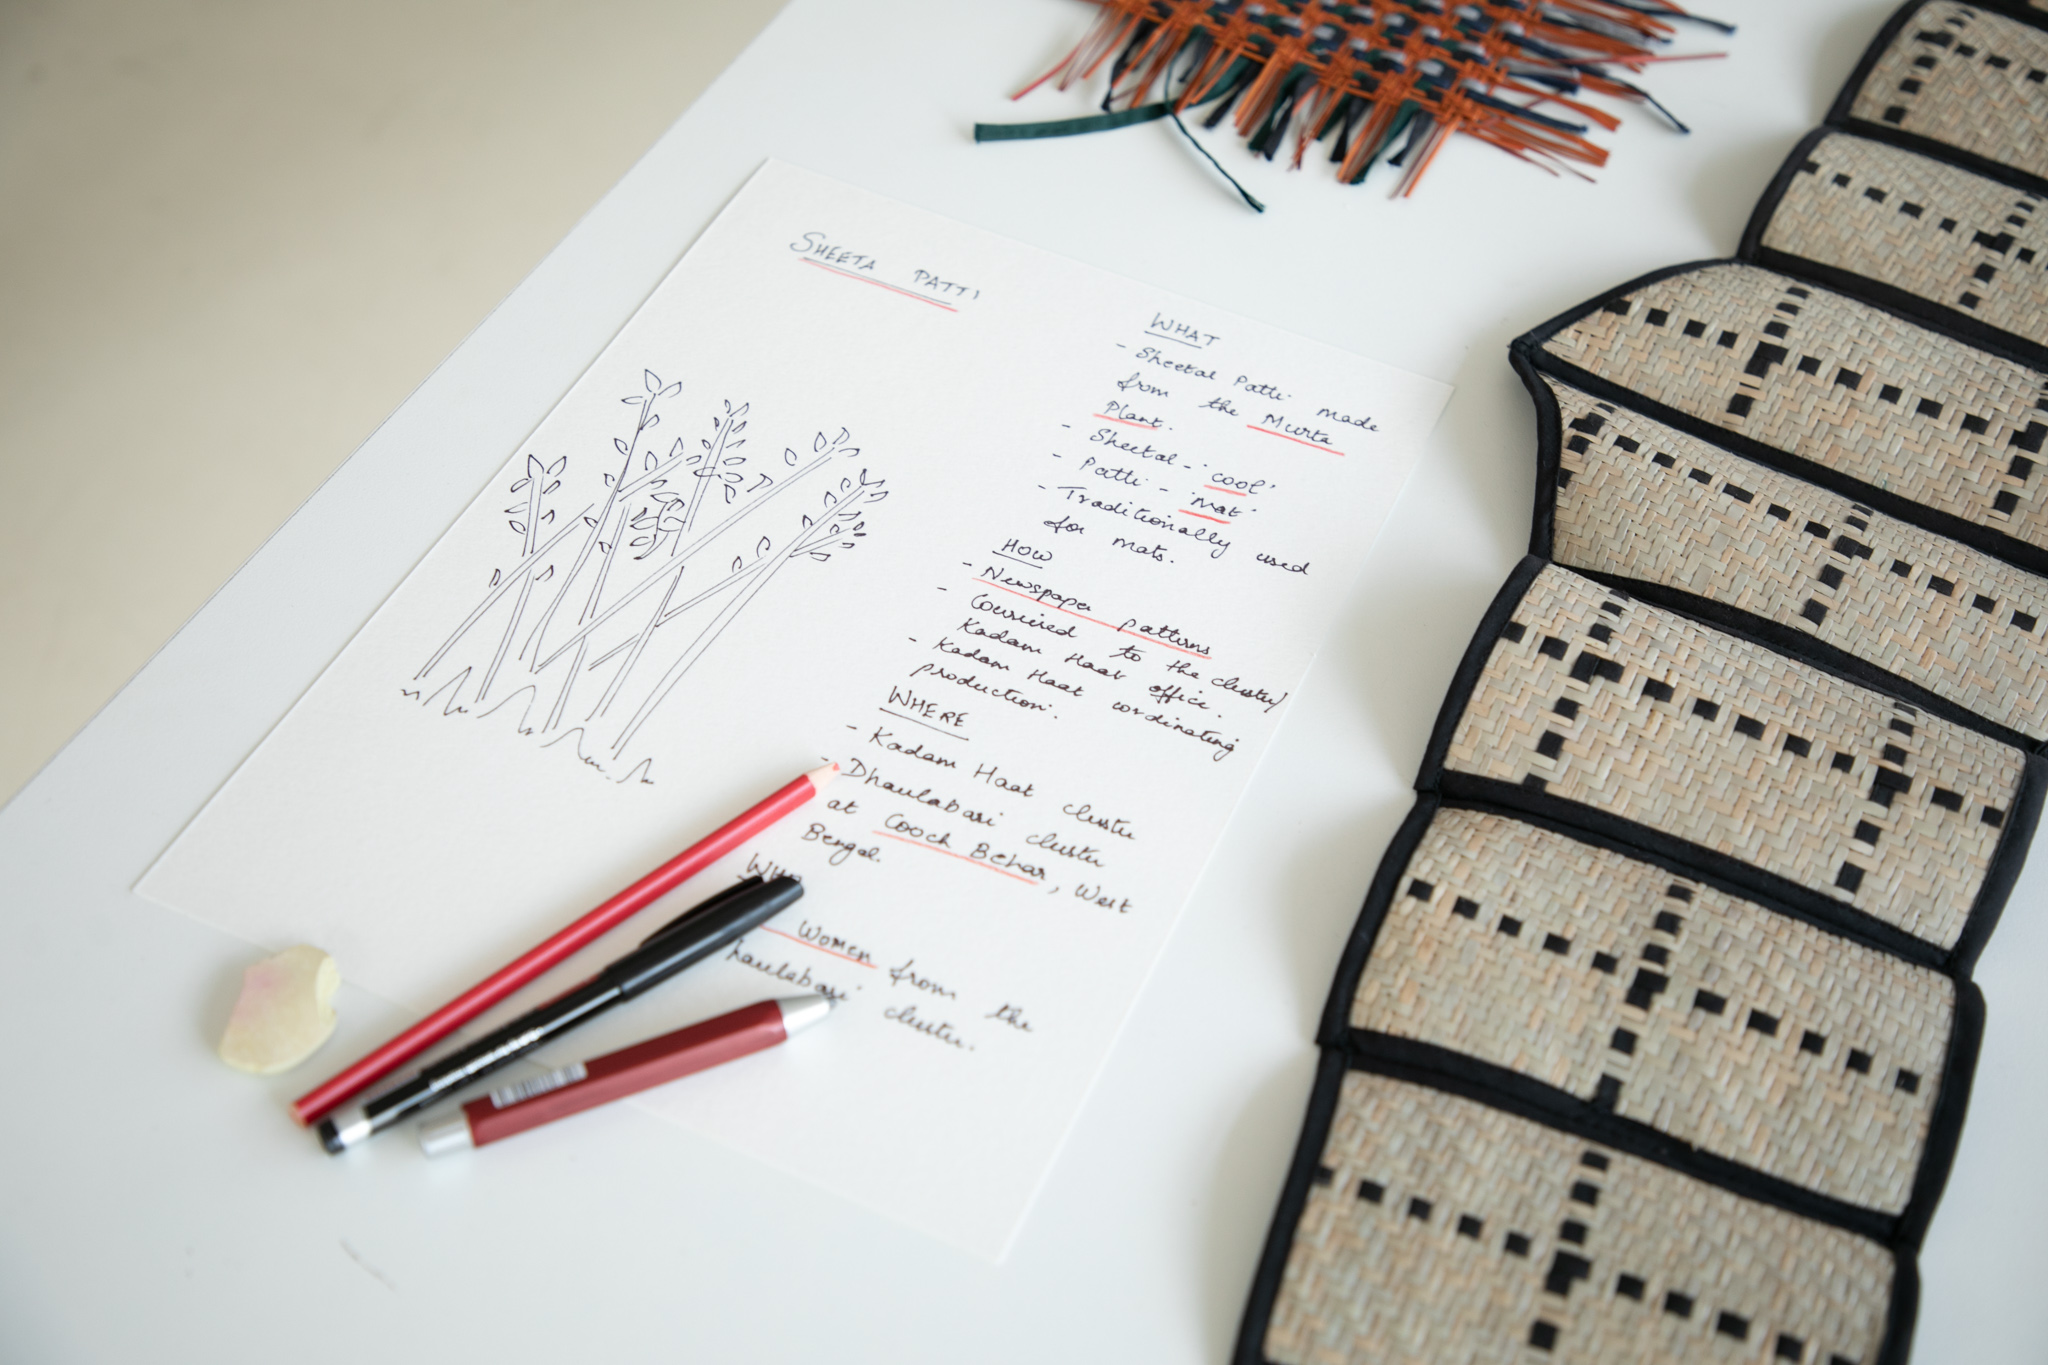 SHEETA PATTI
WHAT
- Sheetal Patti made
from the Murta
Plant.
- Sheetal - 'cool'
- Patti - 'Mat'
- Traditionally used
for mats.
HOW
- Newspaper patterns
- Couriered to the cluster/
Kadam Haat office.
- Kadam Haat cordinating
production.
WHERE
- Kadam Haat cluster
- Dhaulabari cluster
at Cooch Behar, West
Bengal.
WHO
Women from the
haulabari cluster.